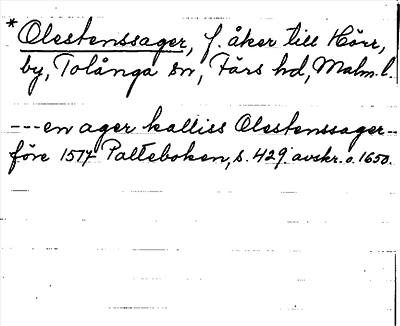 *Olestenssager, f. åker till Hörr,
by, Tolånga sn, Färs hd, Malm. l.
--- en ager kalliss Olestenssager --
före 1517 Palteboken, s. 429. avskr. o. 1650.